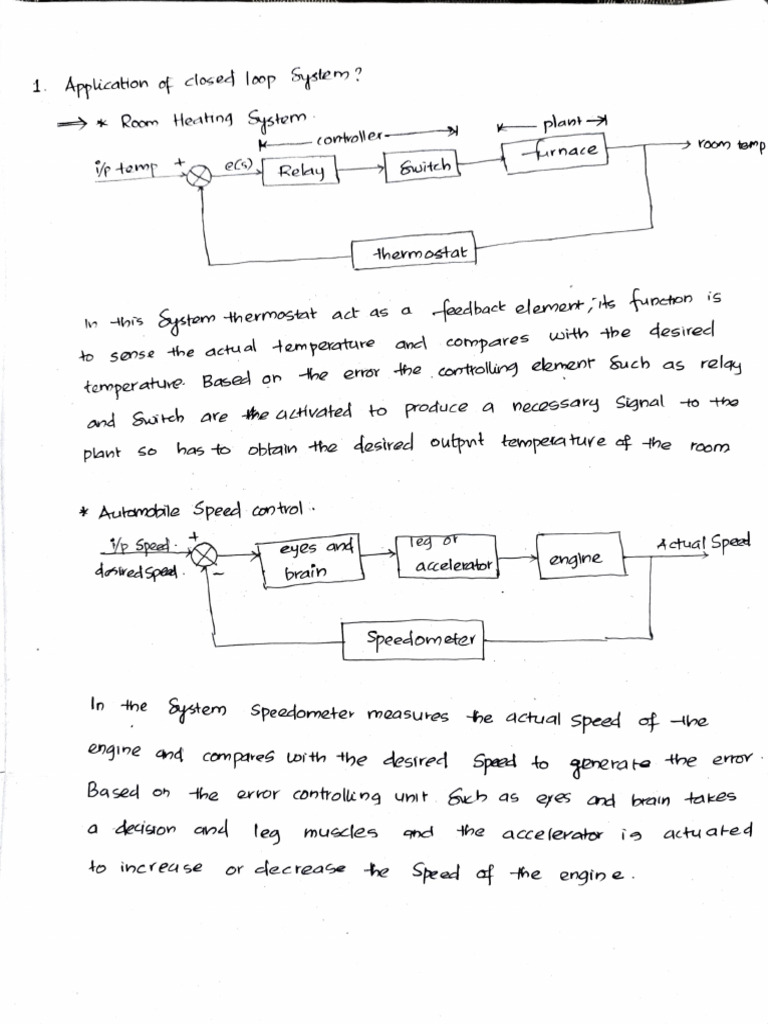 1. Application of closed loop System?
⟹ * Room Heating System.
controller
plant
i/p temp + e(s) Relay Switch furnace room temp
thermostat
In this System thermostat act as a feedback element, its function is
to sense the actual temperature and compares with the desired
temperature. Based on the error the controlling element Such as relay
and Switch are the activated to produce a necessary Signal to the
plant so has to obtain the desired output temperature of the room
* Automobile Speed control.
i/p Speed. + eyes and leg or engine Actual Speed
desired speed. - brain accelerator
Speedometer
In the System Speedometer measures the actual speed of the
engine and compares with the desired Speed to generate the error.
Based on the error controlling unit Such as eyes and brain takes
a decision and leg muscles and the accelerator is actuated
to increase or decrease the Speed of the engine.